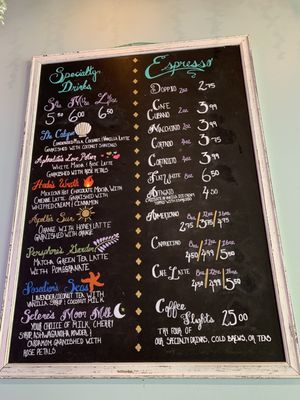 Specialty
Drinks
5.50 6.00 6.50
The Calypso
Condensed Milk, Coconut/Vanilla Latte
Garnished with Coconut Shavings
Aphrodite's Love Potion
White Mocha & Rose Latte
Garnished with Rose Petals
Hade's Wrath
Mexican Hot Chocolate Mocha with
Cayenne Latte. Garnished with
Whipped Cream & Cinnamon
Apollo's Sun
Orange with Honey Latte
Garnished with Orange
Persephone's Garden
Matcha Green Tea Latte
with Pomegranate
Poseidon's Seas
Lavender Coconut Tea with
Vanilla Syrup & Coconut Milk
Selene's Moon Milk
Your choice of milk, cherry
syrup, Ashwagandha powder &
Cardamom. Garnished with
Rose Petals
Espresso
Doppio 2oz 2.75
Cafe
Cubano 3.99
Macchiato 3.99
Cortado 3.75
Cortadito 3.99
Flat White 6.50
Affogato 4.50
Americano 2.75
Cappuccino 4.00 4.50 5.00
Cafe Latte 4.50
Coffee
Flights 25.00
Try four of
our specialty drinks, cold brews, or teas